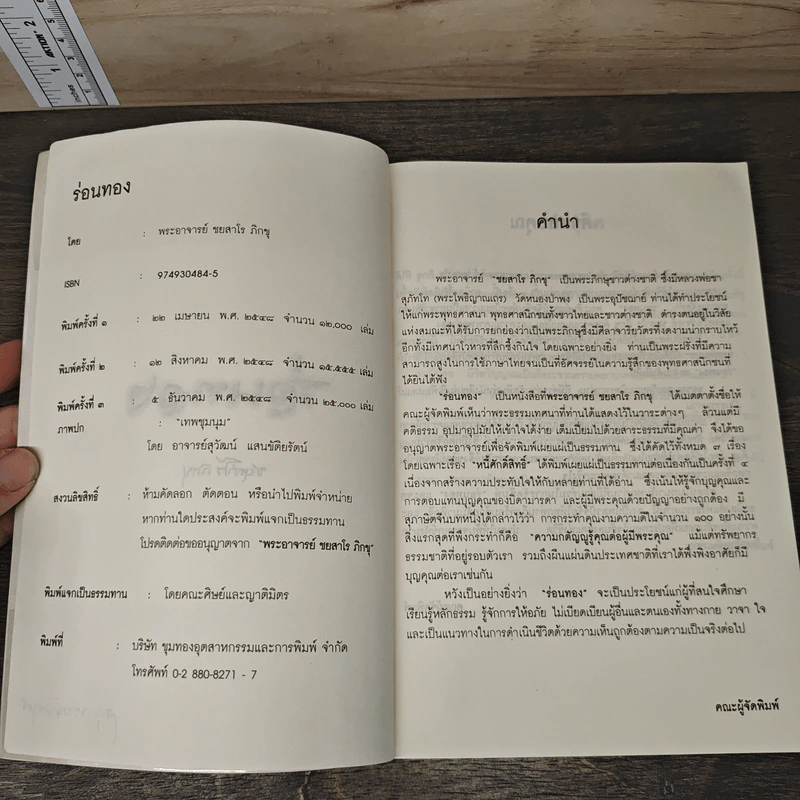 ร่อนทอง
โดย : พระอาจารย์ ชยสาโร ภิกขุ
ISBN : 974930484-5
พิมพ์ครั้งที่ ๑ : ๒๒ เมษายน พ.ศ. ๒๕๔๘ จำนวน ๑๒,๐๐๐ เล่ม
พิมพ์ครั้งที่ ๒ : ๑๒ สิงหาคม พ.ศ. ๒๕๔๘ จำนวน ๑๕,๕๕๕ เล่ม
พิมพ์ครั้งที่ ๓ : ๕ ธันวาคม พ.ศ. ๒๕๔๘ จำนวน ๒๕,๐๐๐ เล่ม
ภาพปก : "เทพชุมนุม"
โดย อาจารย์สุวัฒน์ แสนขัติยรัตน์
สงวนลิขสิทธิ์ : ห้ามคัดลอก ตัดตอน หรือนำไปพิมพ์จำหน่าย
หากท่านใดประสงค์จะพิมพ์แจกเป็นธรรมทาน
โปรดติดต่อขออนุญาตจาก "พระอาจารย์ ชยสาโร ภิกขุ"
พิมพ์แจกเป็นธรรมทาน : โดยคณะศิษย์และญาติมิตร
พิมพ์ที่ : บริษัท ขุมทองอุตสาหกรรมและการพิมพ์ จำกัด
โทรศัพท์ 0-2 880-8271 - 7
คำนำ
พระอาจารย์ "ชยสาโร ภิกขุ" เป็นพระภิกษุชาวต่างชาติ ซึ่งมีหลวงพ่อชา
สุภัทโท (พระโพธิญาณเถร) วัดหนองป่าพง เป็นพระอุปัชฌาย์ ท่านได้ทำประโยชน์
ให้แก่พระพุทธศาสนา พุทธศาสนิกชนทั้งชาวไทยและชาวต่างชาติ ดำรงตนอยู่ในวิสัย
แห่งสมณะที่ได้รับการยกย่องว่าเป็นพระภิกษุซึ่งมีศีลาจาริยวัตรที่งดงามน่ากราบไหว้
อีกทั้งมีเทศนาโวหารที่ลึกซึ้งกินใจ โดยเฉพาะอย่างยิ่ง ท่านเป็นพระฝรั่งที่มีความ
สามารถสูงในการใช้ภาษาไทยจนเป็นที่อัศจรรย์ในความรู้สึกของพุทธศาสนิกชนที่
ได้ยินได้ฟัง
"ร่อนทอง" เป็นหนังสือที่พระอาจารย์ ชยสาโร ภิกขุ ได้เมตตาตั้งชื่อให้
คณะผู้จัดพิมพ์เห็นว่าพระธรรมเทศนาที่ท่านได้แสดงไว้ในวาระต่างๆ ล้วนแต่มี
คติธรรม อุปมาอุปมัยให้เข้าใจได้ง่าย เต็มเปี่ยมไปด้วยสาระธรรมที่มีคุณค่า จึงได้ขอ
อนุญาตพระอาจารย์เพื่อจัดพิมพ์เผยแผ่เป็นธรรมทาน ซึ่งได้คัดไว้ทั้งหมด ๗ เรื่อง
โดยเฉพาะเรื่อง "หนี้ศักดิ์สิทธิ์" ได้พิมพ์เผยแผ่เป็นธรรมทานต่อเนื่องกันเป็นครั้งที่ ๔
เนื่องจากสร้างความประทับใจให้กับหลายท่านที่ได้อ่าน ซึ่งเน้นให้รู้จักบุญคุณและ
การตอบแทนบุญคุณของบิดามารดา และผู้มีพระคุณด้วยปัญญาอย่างถูกต้อง มี
สุภาษิตจีนบทหนึ่งได้กล่าวไว้ว่า การกระทำคุณงามความดีในจำนวน ๑๐๐ อย่างนั้น
สิ่งแรกสุดที่พึงกระทำก็คือ "ความกตัญญูรู้คุณต่อผู้มีพระคุณ" แม้แต่ทรัพยากร
ธรรมชาติที่อยู่รอบตัวเรา รวมถึงผืนแผ่นดินประเทศชาติที่เราได้พึ่งพิงอาศัยก็มี
บุญคุณต่อเราเช่นกัน
หวังเป็นอย่างยิ่งว่า "ร่อนทอง" จะเป็นประโยชน์แก่ผู้ที่สนใจศึกษา
เรียนรู้หลักธรรม รู้จักการให้อภัย ไม่เบียดเบียนผู้อื่นและตนเองทั้งทางกาย วาจา ใจ
และเป็นแนวทางในการดำเนินชีวิตด้วยความเห็นถูกต้องตามความเป็นจริงต่อไป
คณะผู้จัดพิมพ์